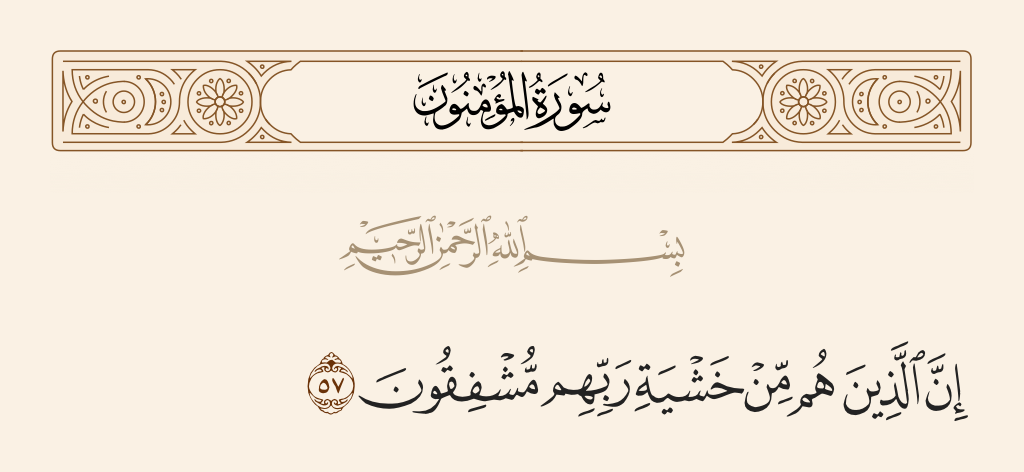 سُورَةُ المُؤْمِنُونَ
بِسْمِ ٱللَّهِ ٱلرَّحْمَٰنِ ٱلرَّحِيمِ
إِنَّ ٱلَّذِينَ هُم مِّنْ خَشْيَةِ رَبِّهِم مُّشْفِقُونَ ٥٧